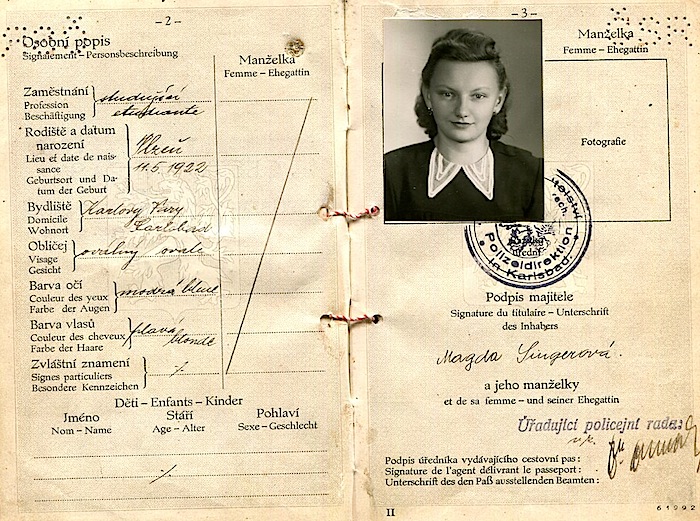 – 2 –
Osobní popis
Signalement – Personsbeschreibung
Manželka
Femme – Ehegattin
Zaměstnání
Profession
Beschäftigung
studující
étudiante
Rodiště a datum
narození
Lieu et date de nais-
sance
Geburtsort und Da-
tum der Geburt
Plzeň
11.5.1922
Bydliště
Domicile
Wohnort
Karlovy Vary
Carlsbad
Obličej
Visage
Gesicht
oválný ovale
Barva očí
Couleur des yeux
Farbe der Augen
modrá bleue
Barva vlasů
Couleur des cheveux
Farbe der Haare
plavá
blonde
Zvláštní znamení
Signes particuliers
Besondere Kennzeichen
Děti – Enfants – Kinder
Jméno
Nom – Name
Stáří
Age – Alter
Pohlaví
Sexe – Geschlecht
– 3 –
Manželka
Femme – Ehegattin
Fotografie
Polizeidirektion
in Karlsbad.
Podpis majitele
Signature du titulaire – Unterschrift
des Inhabers
Magda Singerová.
a jeho manželky
et de sa femme – und seiner Ehegattin
Úřadující policejní rada:
Podpis úředníka vydávajícího cestovní pas:
Signature de l'agent délivrant le passeport:
Unterschrift des den Paß ausstellenden Beamten:
II
61992